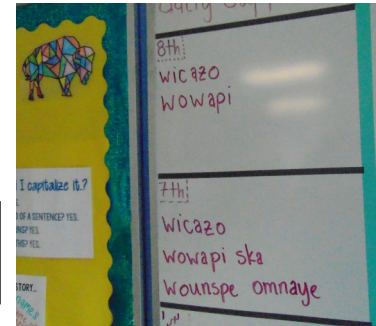 8th:
wicazo
wowapi
7th:
wicazo
wowapi ska
wounspe omnaye
I capitalize it.?
OF A SENTENCE? YES.
YES.
YES.
STORY...
names